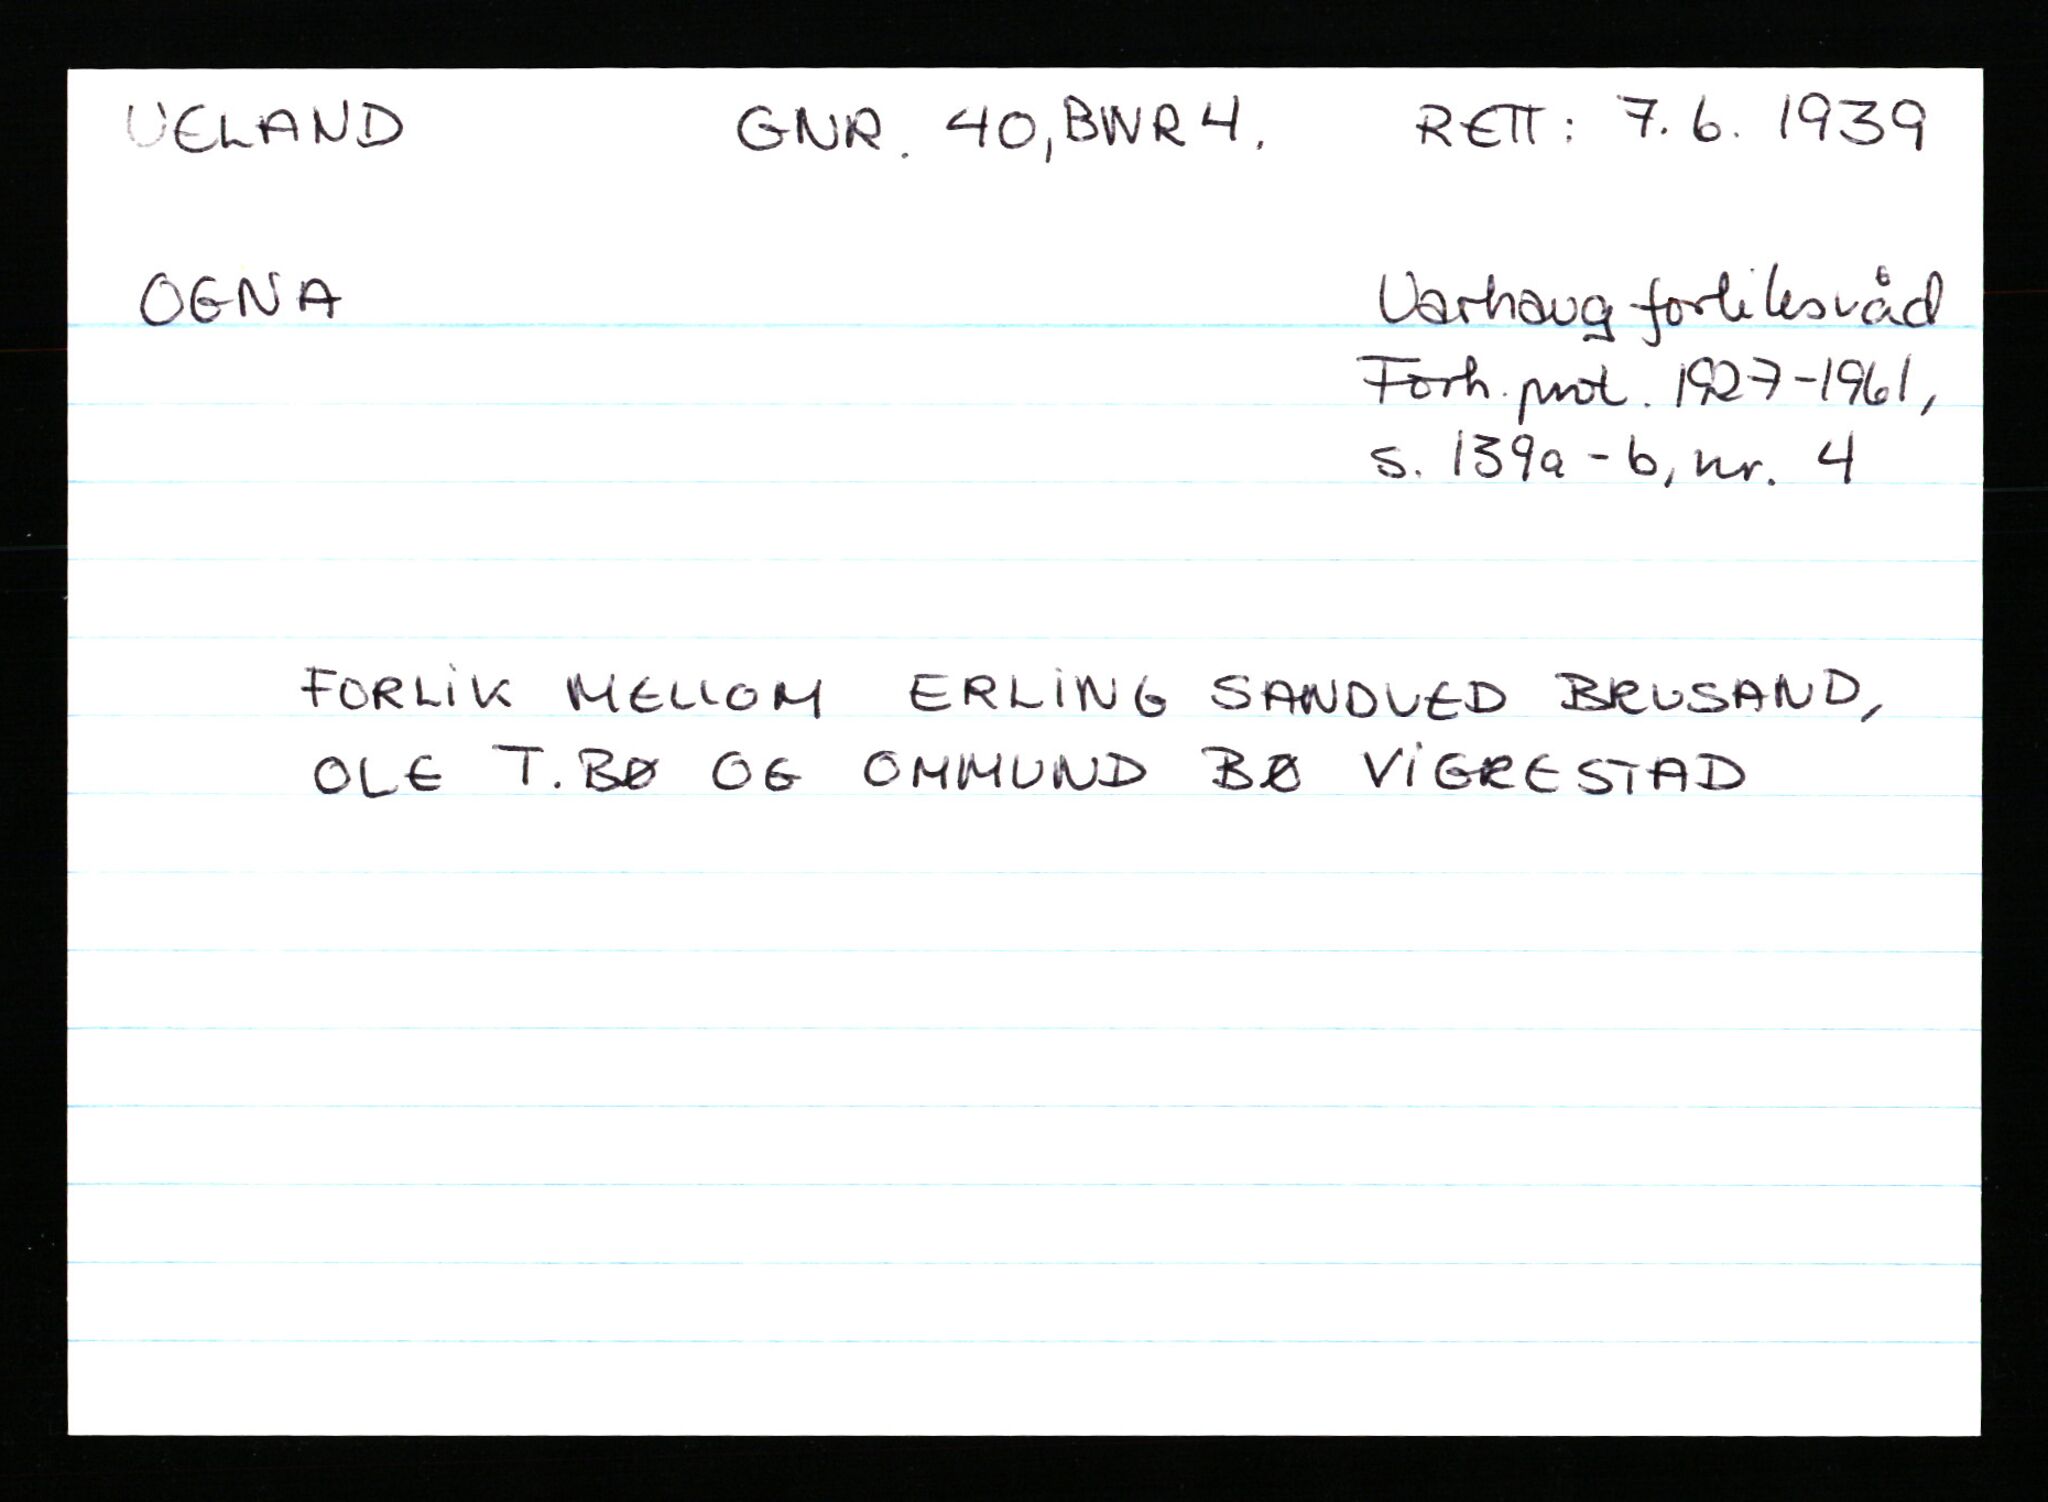 UELAND GNR. 40, BNR 4. RETT: 7.6.1939
OGNA Varhaug forliksråd
Forh. prot. 1927-1961,
s. 139a-b, nr. 4
FORLIK MELLOM ERLING SANDVED BRUSAND,
OLE T. BØ OG OMMUND BØ VIGRESTAD